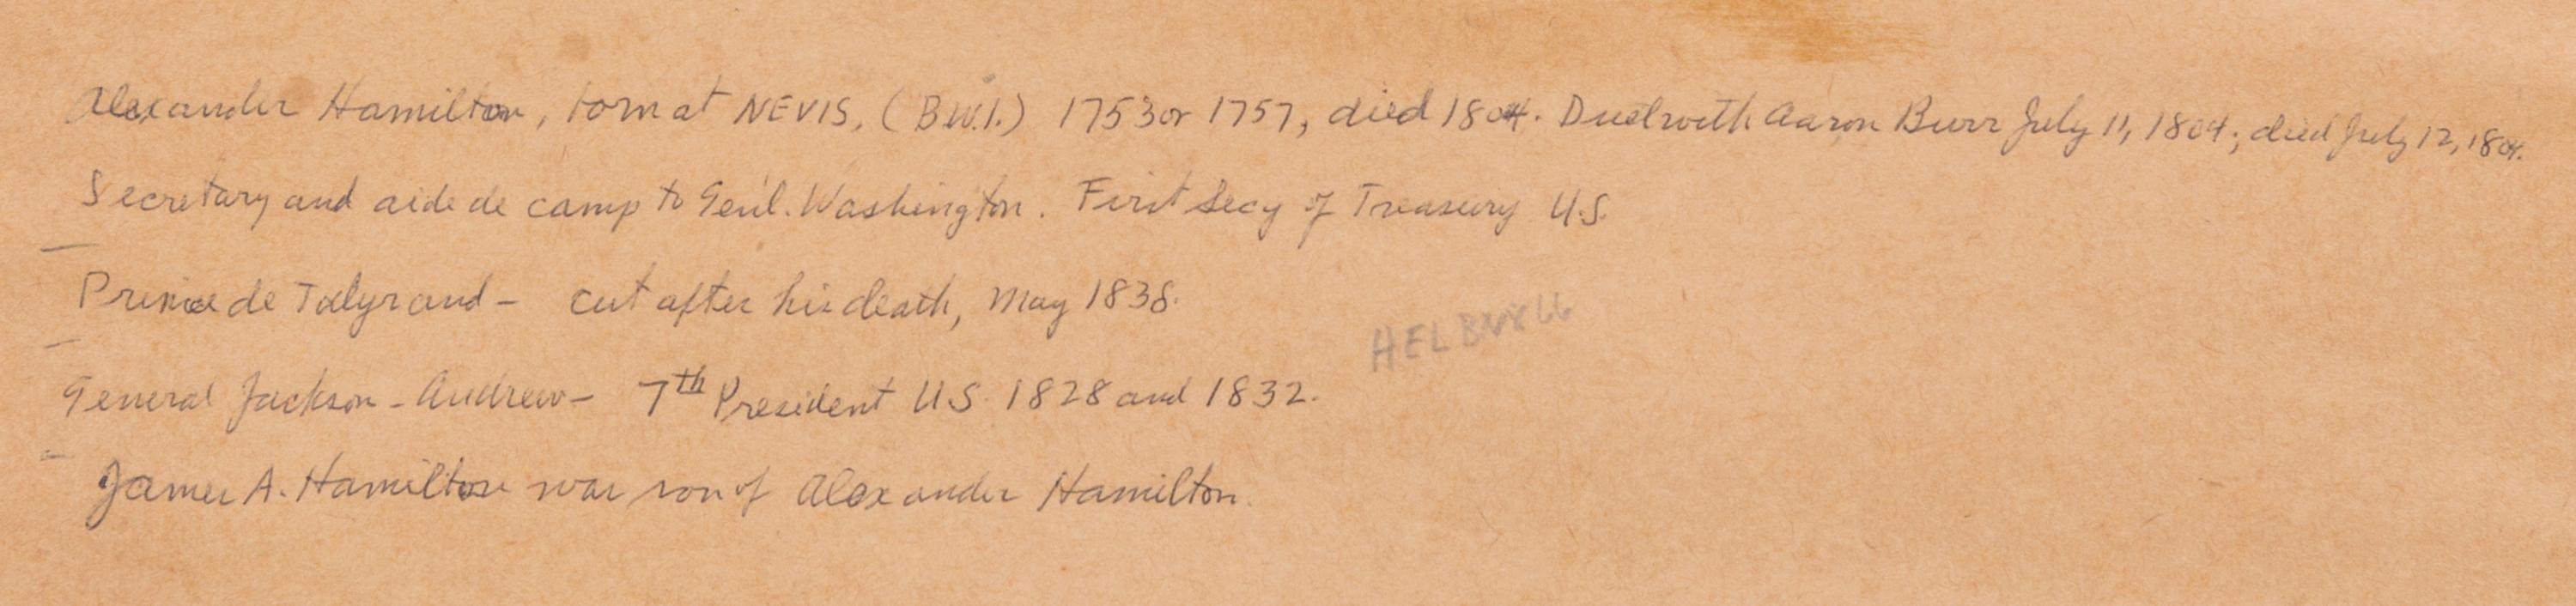 Alexander Hamilton, born at NEVIS, (B.W.I.) 1753 or 1757, died 1804. Duel with Aaron Burr July 11, 1804; died July 12, 1804.
Secretary and aide de camp to Gen'l. Washington. First Secy of Treasury U.S.
Prince de Talyrand - cut after his death, May 1838.
General Jackson - Andrew - 7th President U.S. 1828 and 1832.
James A. Hamilton was son of Alexander Hamilton.